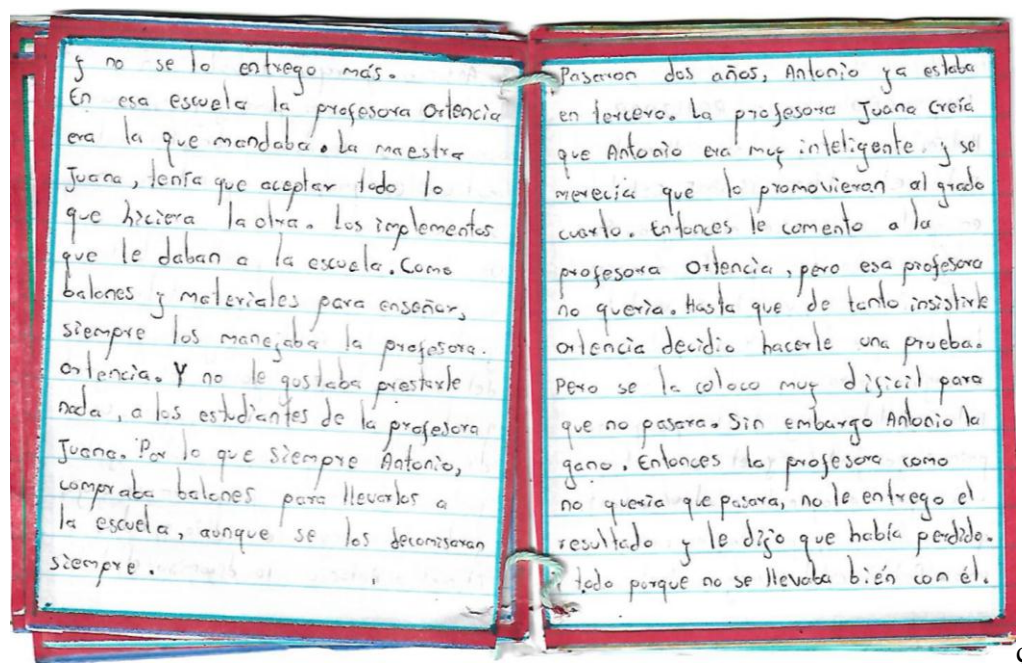 y no se lo entrego más.
En esa escuela la profesora Ortencia
era la que mandaba. La maestra
Juana, tenía que aceptar todo lo
que hiciera la otra. Los implementos
que le daban a la escuela. Como
balones y materiales para enseñar,
siempre los manejaba la profesora.
Ortencia. Y no le gustaba prestarle
nada, a los estudiantes de la profesora
Juana. Por lo que siempre Antonio,
compraba balones para llevarlos a
la escuela, aunque se los decomisaran
siempre.
Pasaron dos años, Antonio ya estaba
en tercero. La profesora Juana creía
que Antonio era muy inteligente y se
merecia que lo promovieran al grado
cuarto. Entonces le comento a la
profesora Ortencia, pero esa profesora
no queria. Hasta que de tanto insistirle
Ortencia decidio hacerle una prueba.
Pero se la coloco muy dificil para
que no pasara. Sin embargo Antonio la
gano. Entonces la profesora como
no queria que pasara, no le entrego el
resultado y le dijo que había perdido.
todo porque no se llevaba bién con él.